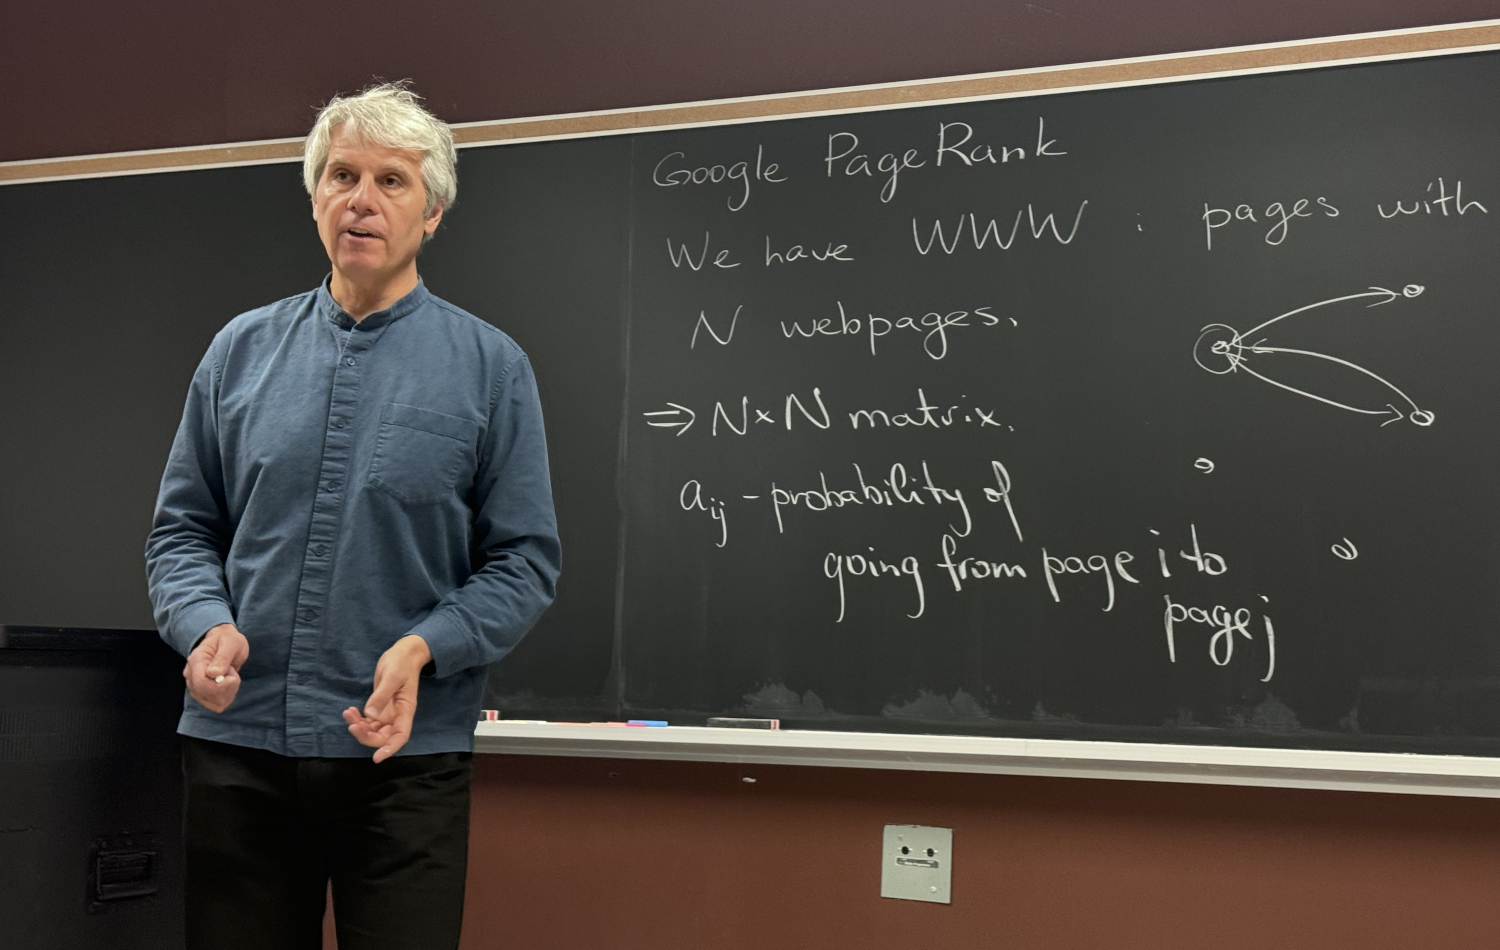 Google PageRank
We have WWW : pages with
N webpages.
⇒ N×N matrix.
a_ij - probability of
going from page i to
page j